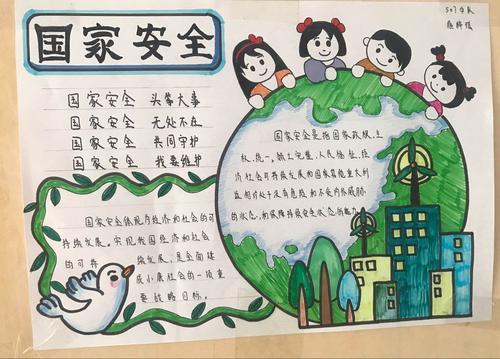 国家安全
507中队
国家安全 头等大事
国家安全 无处不在
国家安全 共同守护
国家安全 我要维护
国家安全是指国家政权、主
权、统一、领土完整、人民福祉、经
济社会可持续发展和国家其他重大利
益相对处于没有危险和不受内外威胁
的状态,和保障持续安全状态的能力
国家安全体现为经济和社会的可
持续发展。实现我国经济和社会
的可持 续发展,是全面建
成小康社会的一项重
要战略目标。